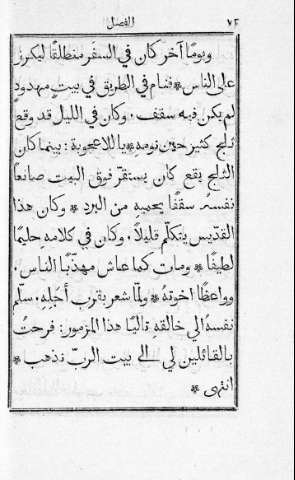 ٧٢ الفصل
ويومًا آخر كان في السفَر منطلقًا ليكرز
على الناس * فنام في الطريق في بيتٍ مهدودٍ
لم يكن فيه سقف. وكان في الليل قد وقع
ثلج كثير حين نومهِ * يا للاعجوبة: بينما كان
الثلج يقع كان يستقرّ فوق البيت صانعًا
نفسهُ سقفًا يحميهِ من البرد * وكان هذا
القدّيس يتكلّم قليلًا. وكان في كلامهِ حليمًا
لطيفًا * ومات كما عاش مهذّبًا الناس.
وواعظًا اخوتهُ * ولمّا شعر بقرب أجلِهِ. سلّم
نفسهُ الى خالقهِ تاليًا هذا المزمور: فرحتُ
بالقائلين لي الى بيت الربّ نذهب *
انتهى *